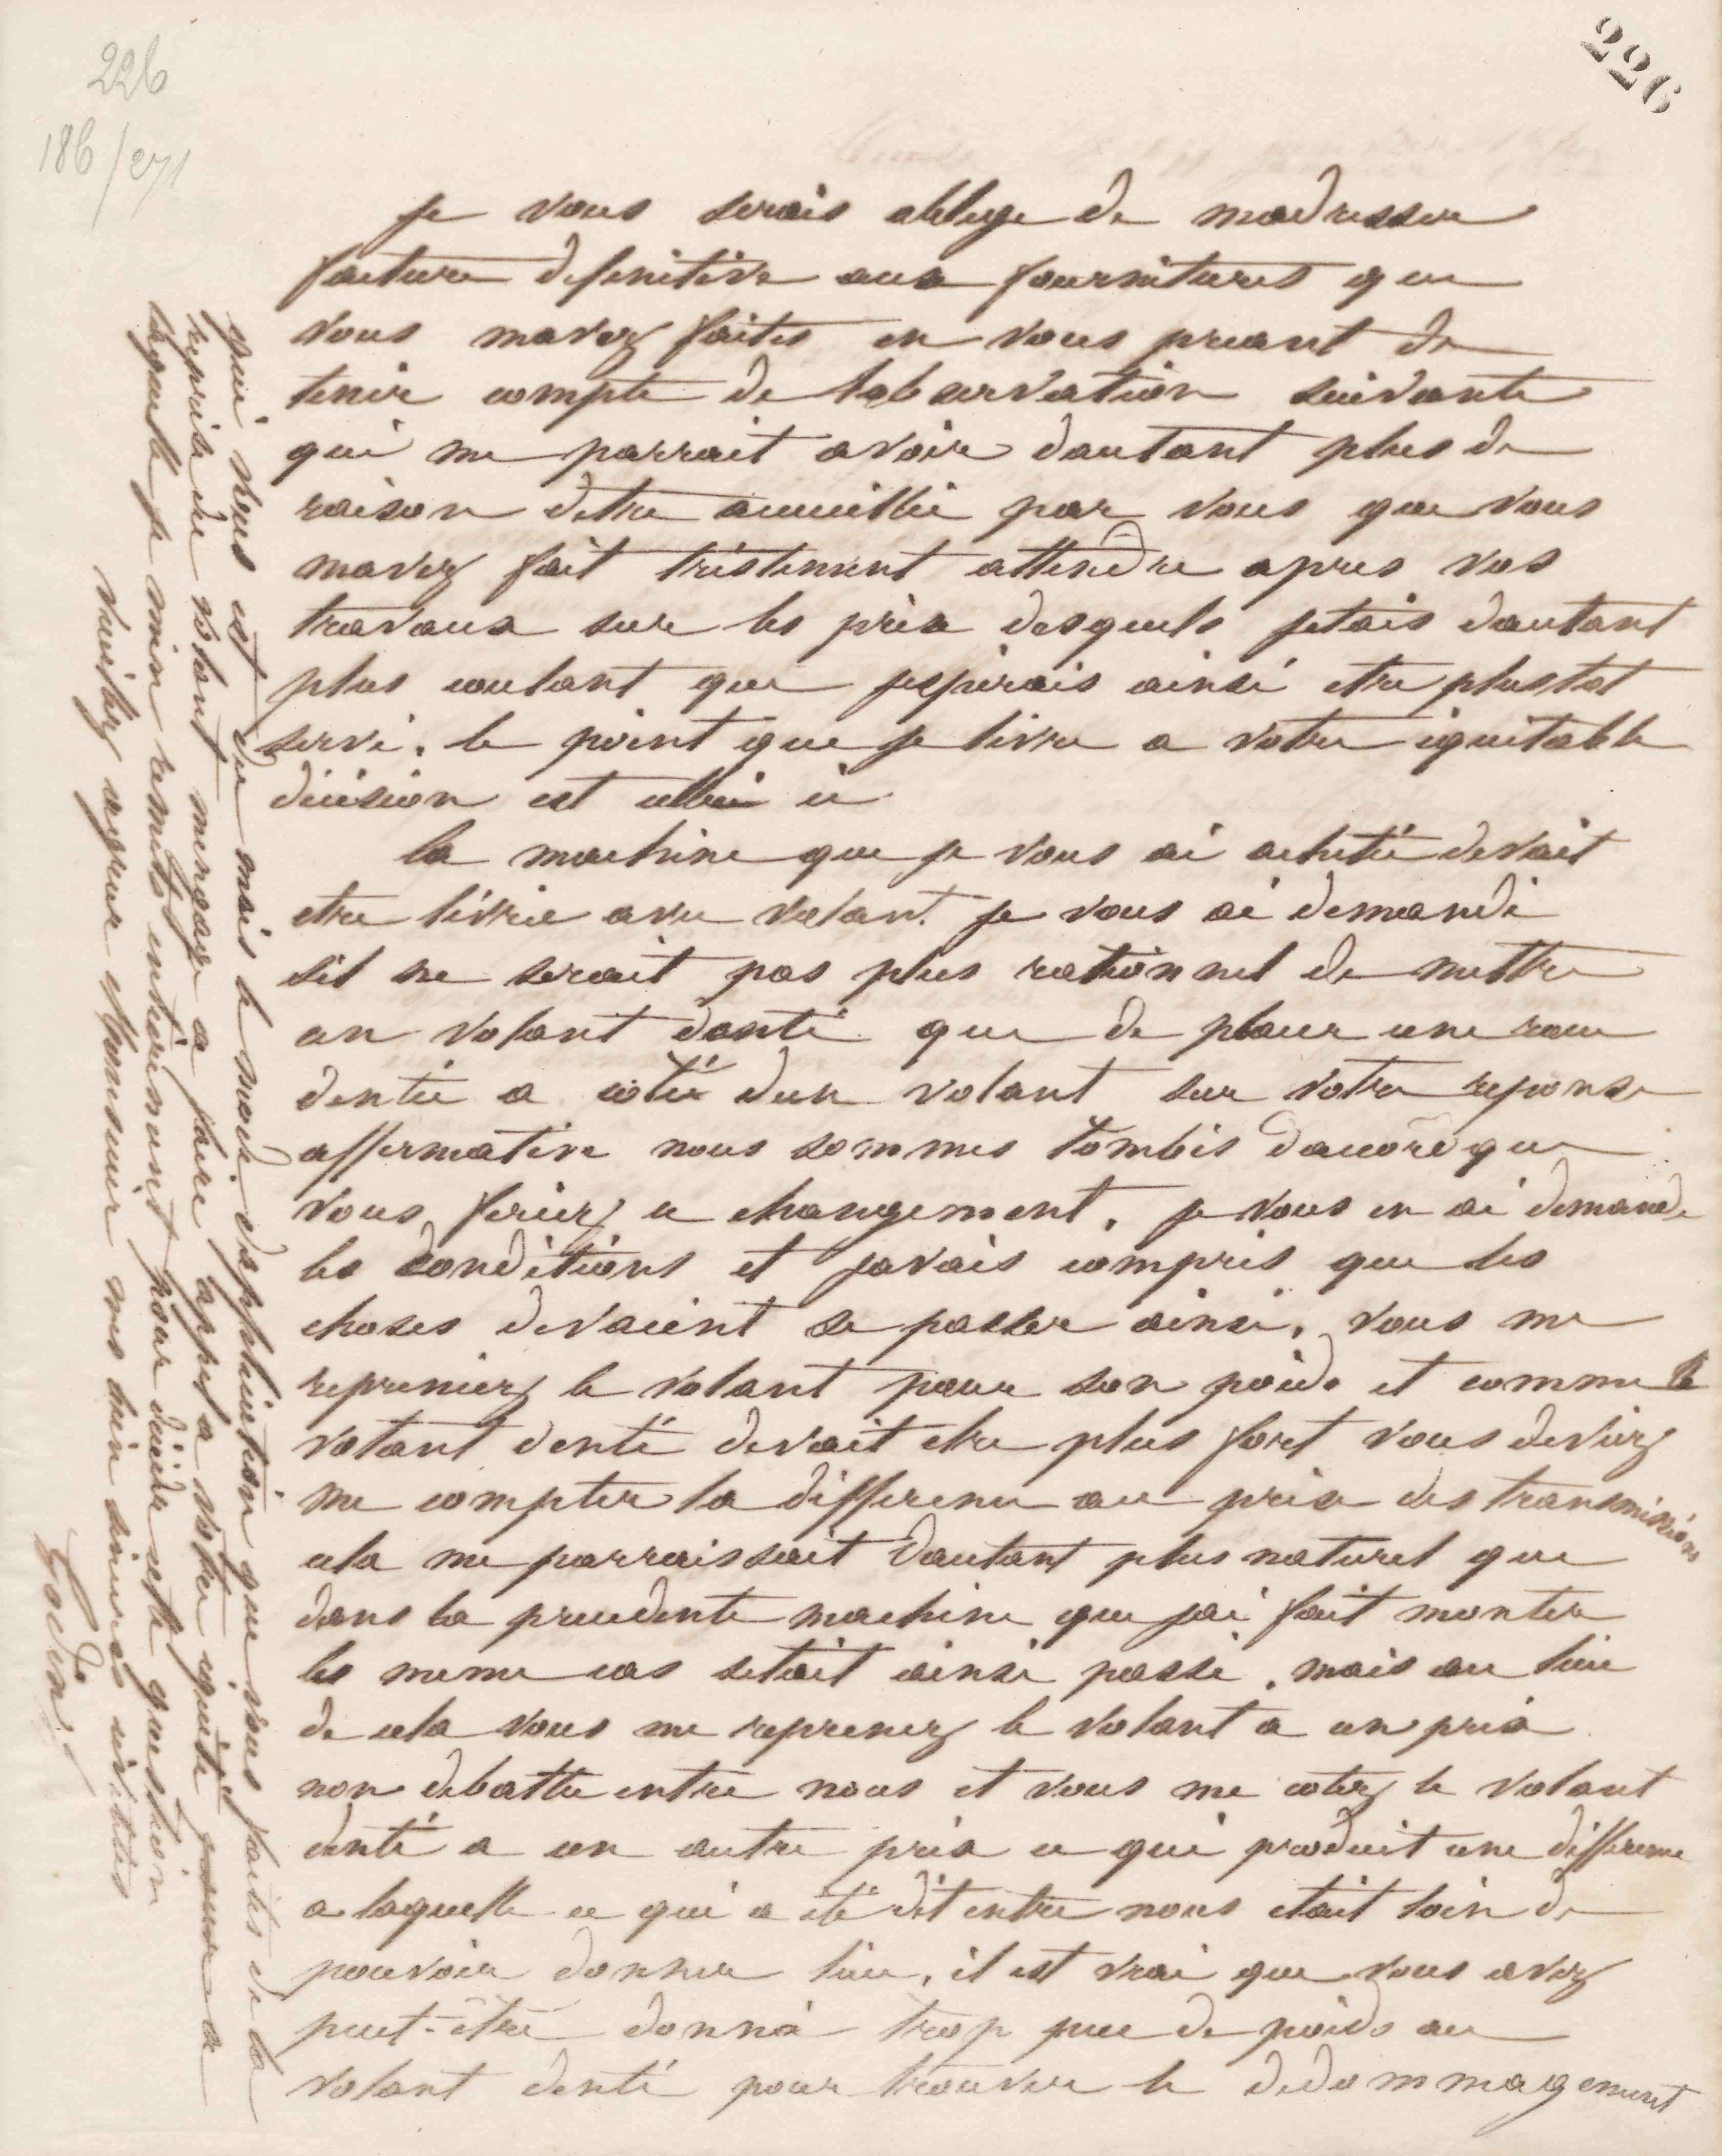 226
186/271
226
je vous serais obligé de madresser
facture definitive aux fournitures que
vous mavez faites en vous priant de
tenir compte de lobservation suivante
qui me parrait avoir dautant plus de
raison detre acceuillie par vous que vous
mavez fait tristement attendre apres vos
travaux sur les prix desquels jetais dautant
plus coulant que jesperais ainsi etre plustot
servi. le point que je livre a votre equitable
décision est celui ci
la machine que je vous ai achetée devait
etre livrée avec volant. je vous ai demandé
sil ne serait pas plus rationnel de mettre
un volant denté que de placer une roue
dentée a coté dun volant sur votre reponse
affirmative nous sommes tombés daccord que
vous feriez ce changement. je vous en ai demandé
les conditions et javais compris que les
choses devaient se passer ainsi. vous me
repreniez le volant pour son poids et comme le
volant denté devait etre plus fort vous deviez
me compter la difference au prix des transmissions
cela me parraissait dautant plus naturel que
dans la precedente machine que jai fait monter
les meme cas setait ainsi passé. mais au lieu
de cela vous me reprenez le volant a un prix
non debattu entre nous et vous me cotez le volant
denté a un autre prix ce qui produit une difference
a laquelle ce qui a été dit entre nous etait loin de
pouvoir donner lieu. il est vrai que vous avez
peut-être donné trop peu de poids au
volant denté pour trouver le dedommagement
qui vous est du mais le mode dexplication que vous faites de la
reprise du volant mengage a faire appel a votre equité
laquelle je men remets entierement pour décider cette question
Veuillez agreer Monsieur mes bien sinceres civilités
Godin